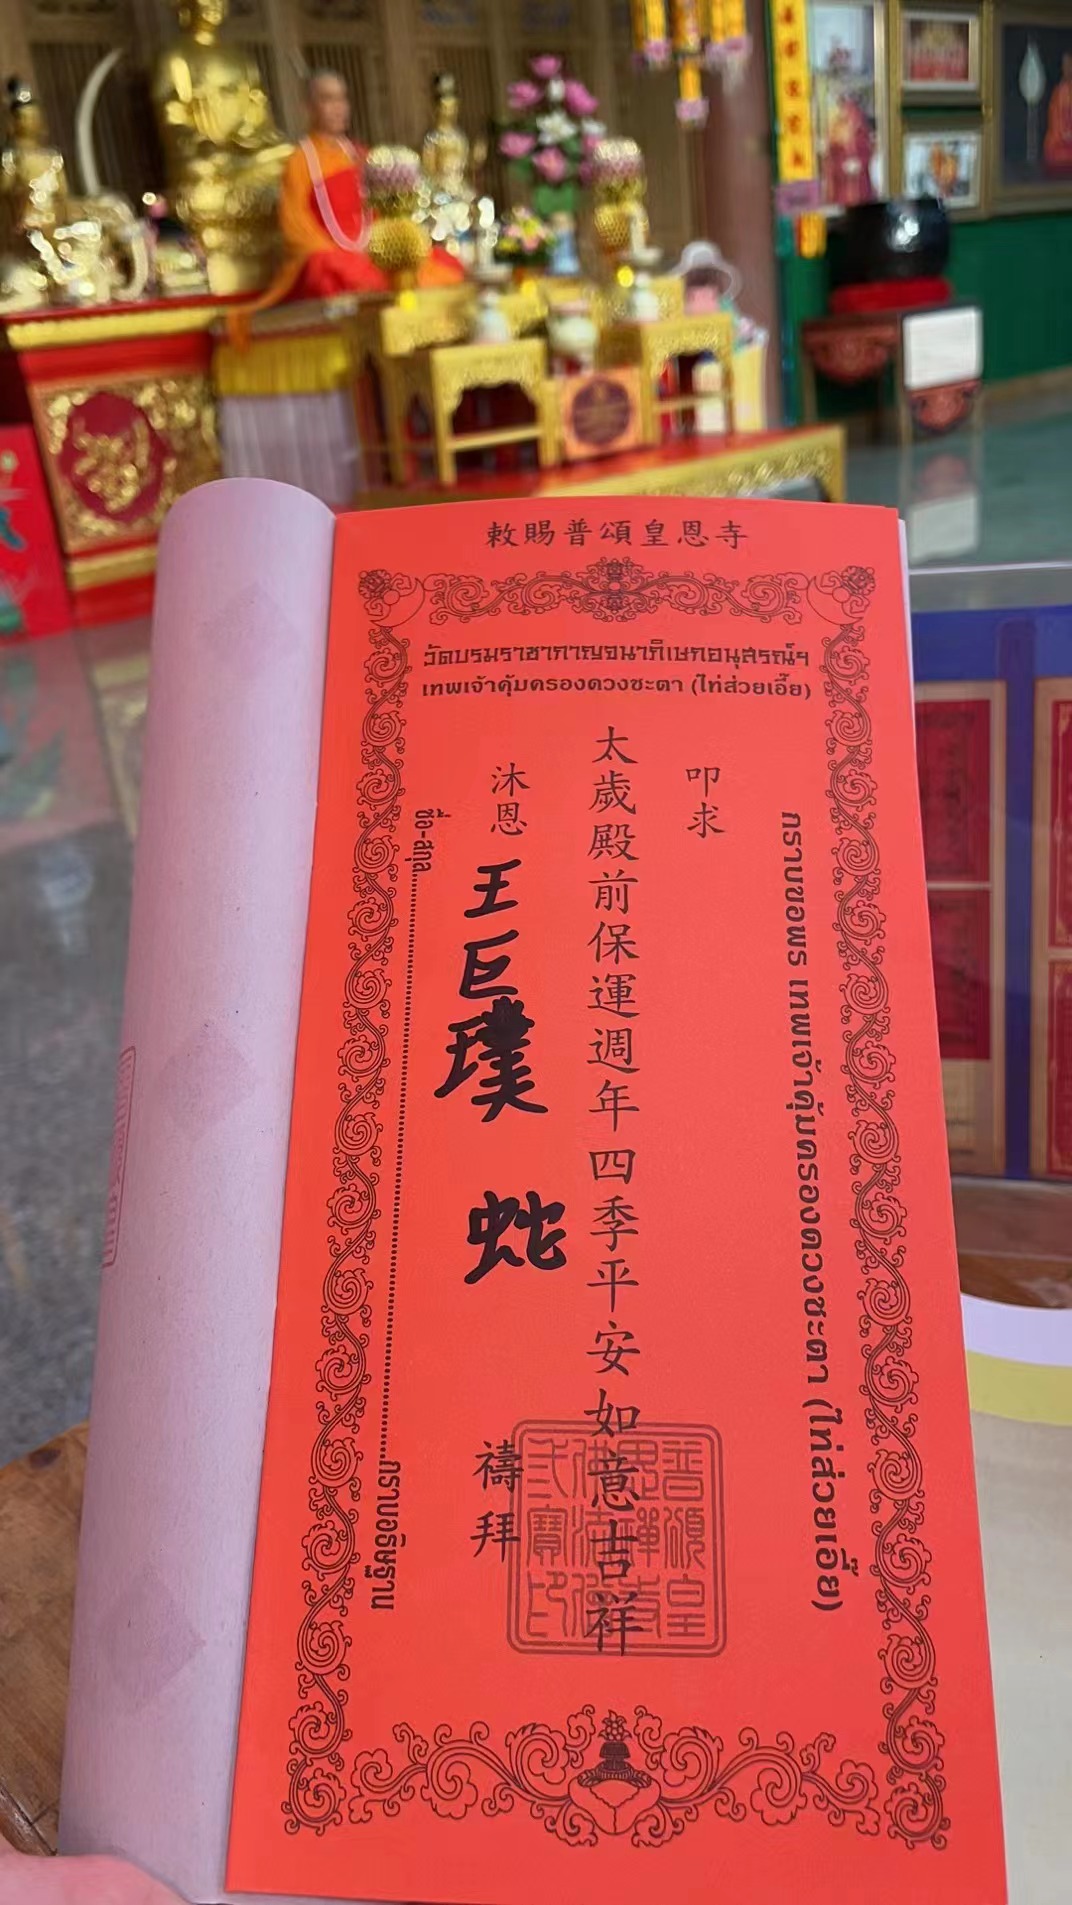 敕賜普頌皇恩寺
วัดบรมราชากาญจนาภิเษกอนุสรณ์ฯ
เทพเจ้าคุ้มครองดวงชะตา (ไท่ส่วยเอี๊ย)
กราบขอพร เทพเจ้าคุ้มครองดวงชะตา (ไท่ส่วยเอี๊ย)
叩求
太歲殿前保運週年四季平安如意吉祥
沐恩 王巨璞 蛇 禱拜
ชื่อ-สกุล....................กราบอธิษฐาน
普頌皇
恩禪寺
佛法僧
三寶印